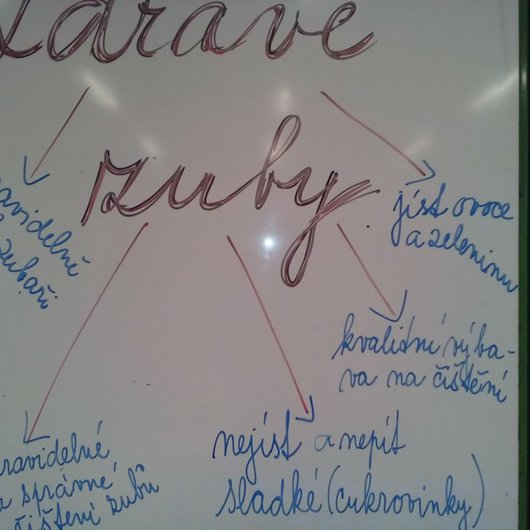 Zdravé
zuby
avidelně
zubaři
jíst ovoce
a zeleninu
kvalitní výba-
va na čištění
nejíst a nepít
sladké (cukrovinky)
ravidelné
a správné
čištění zubů